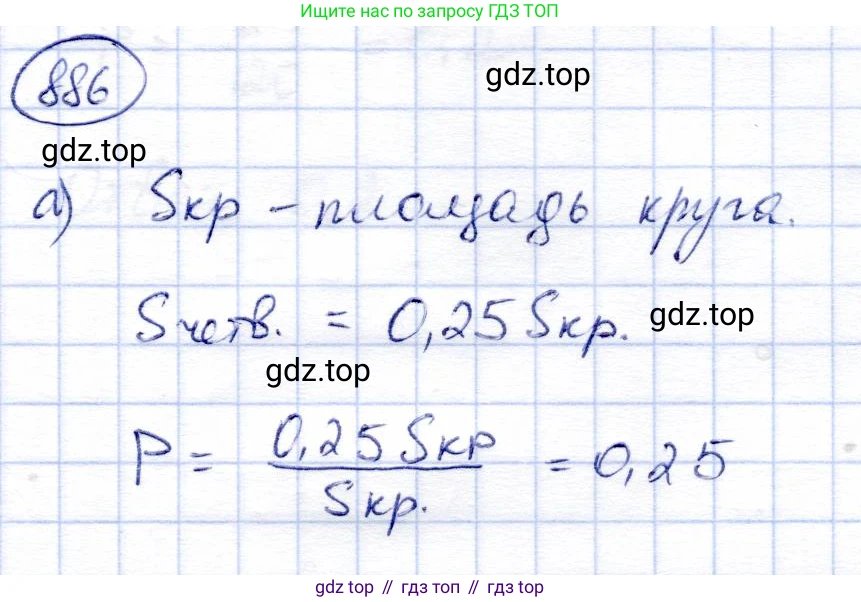 Ищите нас по запросу ГДЗ ТОП
886
gdz.top
gdz.top
а) Sкр - площадь круга.
Sчетв. = 0,25 Sкр.
gdz.top
gdz.top
P = 0,25 Sкр / Sкр. = 0,25
gdz top // гдз топ // gdz top